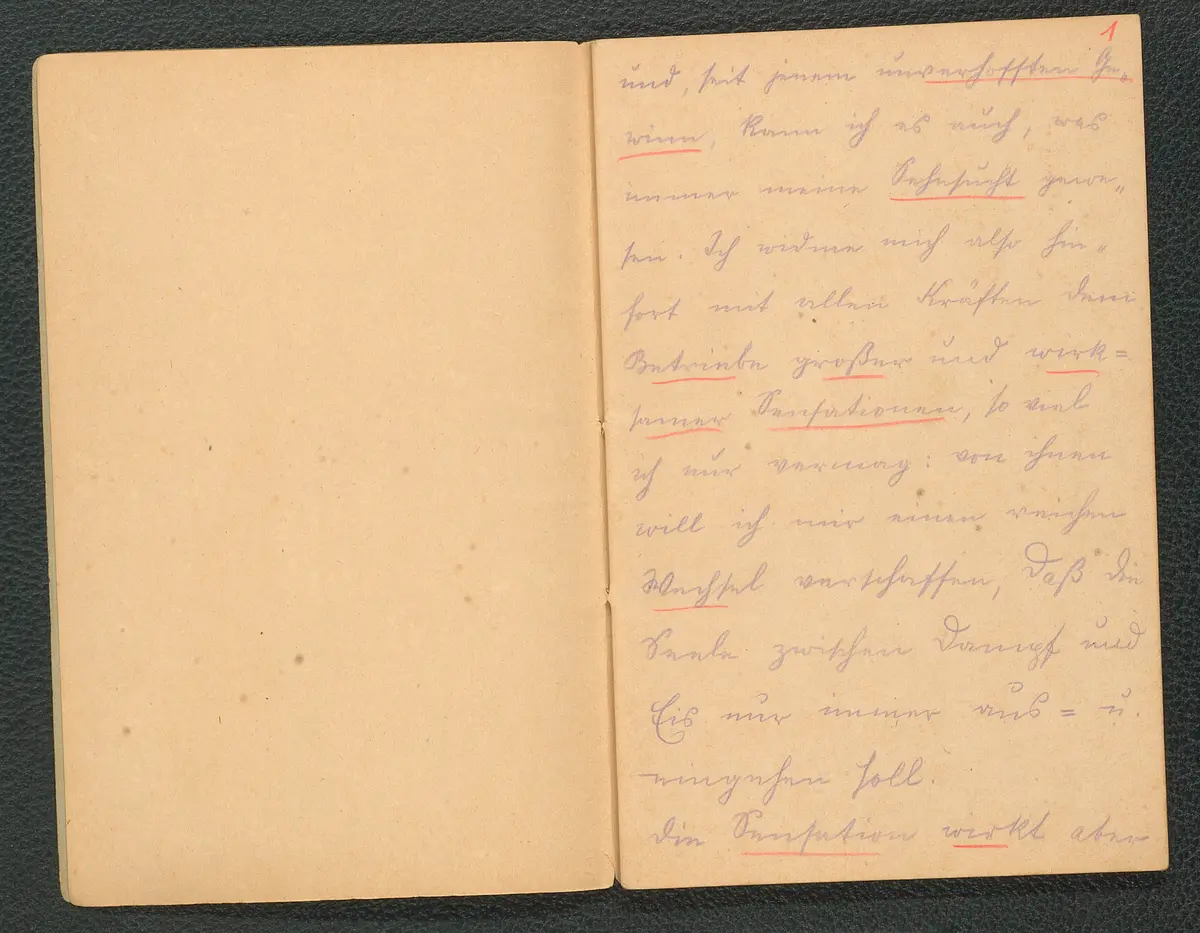 1
und, seit jenem unverhofften Ge„
winn, kann ich es auch, was
immer meine Sehnsucht gewe„
sen. Ich widme mich also hin„
fort mit allen Kräften dem
Betriebe großer und wirk=
samer Sensationen, so viel
ich nur vermag: von ihnen
will ich mir einen reichen
Wechsel verschaffen, Daß die
Seele zwischen Dampf und
Eis nur immer aus= u.
eingehen soll.
Die Sensation wirkt aber